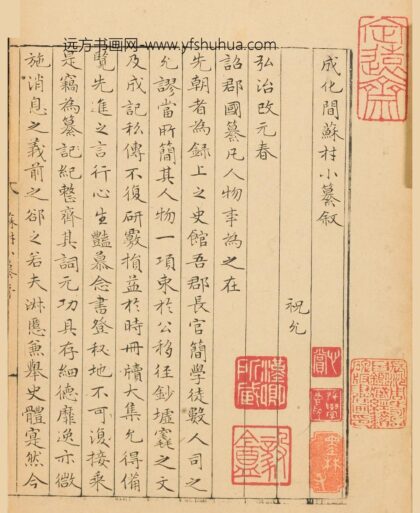 远方书画网-www.yfshuhua.com
成化間蘇材小纂叙
祝允
弘治改元春
詔郡國纂凡人物事為之在
先朝者為録上之史館吾郡長官簡學徒數人司之
允謬當所簡其人物一項東於公移徑鈔墟竁之文
及戍記私傳不復研覈損益於時冊牘大集允得備
覽先進之言行心生豔慕念書登秘地不可復接乗
是竊為纂記紀整齊其詞元功具存細德靡逸亦微
施消息之義前之郤之若夫淋慝兼舉史體寔然今
墨林